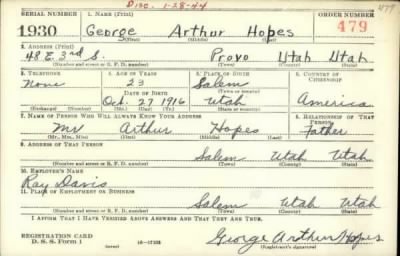 Disc. 1-28-44
479
SERIAL NUMBER 1. NAME (Print) ORDER NUMBER
1930 George Arthur Hopes 479
(First) (Middle) (Last)
2. ADDRESS (Print)
48 E. 3rd S. Provo Utah Utah
(Number and street or R. F. D. number) (Town) (County) (State)
3. TELEPHONE 4. AGE IN YEARS 5. PLACE OF BIRTH 6. COUNTRY OF CITIZENSHIP
None 23 Salem
DATE OF BIRTH (Town or county)
Oct. 27 1916 Utah America
(Exchange) (Number) (Mo.) (Day) (Yr.) (State or country)
7. NAME OF PERSON WHO WILL ALWAYS KNOW YOUR ADDRESS 8. RELATIONSHIP OF THAT PERSON
Mr Arthur Hopes Father
(Mr., Mrs., Miss) (First) (Middle) (Last)
9. ADDRESS OF THAT PERSON
Salem Utah Utah
(Number and street or R. F. D. number) (Town) (County) (State)
10. EMPLOYER'S NAME
Ray Davis
11. PLACE OF EMPLOYMENT OR BUSINESS
Salem Utah Utah
(Number and street or R. F. D. number) (Town) (County) (State)
I AFFIRM THAT I HAVE VERIFIED ABOVE ANSWERS AND THAT THEY ARE TRUE.
REGISTRATION CARD
D. S. S. Form 1 George Arthur Hopes
(Registrant's signature)